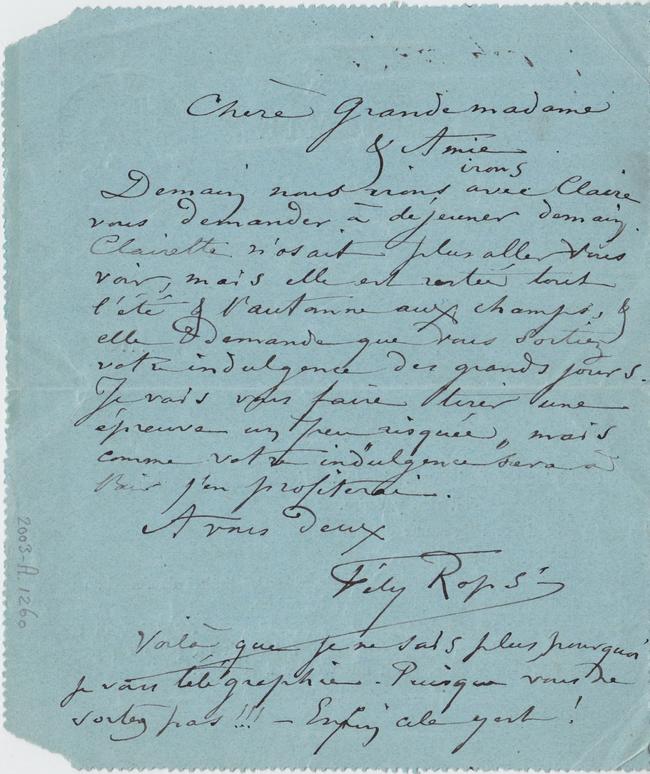 Chère Grande madame
& Amie
irons
Demain nous irons avec Claire
vous demander à déjeuner demain.
Clairette n'osait plus aller vous
voir, mais elle est restée tout
l'été & l'automne aux champs, &
elle demande que vous sortiez
votre indulgence des grands jours.
Je vais vous faire tirer une
épreuve un peu risquée, mais
comme votre "indulgence" sera à
l'air j'en profiterai.
A vous deux
Fély Rops
Voilà que je ne sais plus pourquoi
je vous télégraphie. Puisque vous ne
sortez pas !!! — Enfin cela y est !
2003-A.1260